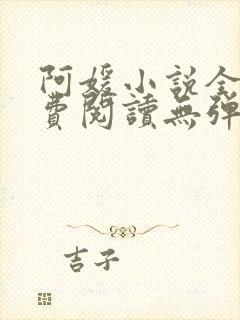 阿媛小說全
費閱讀無彈
吉子